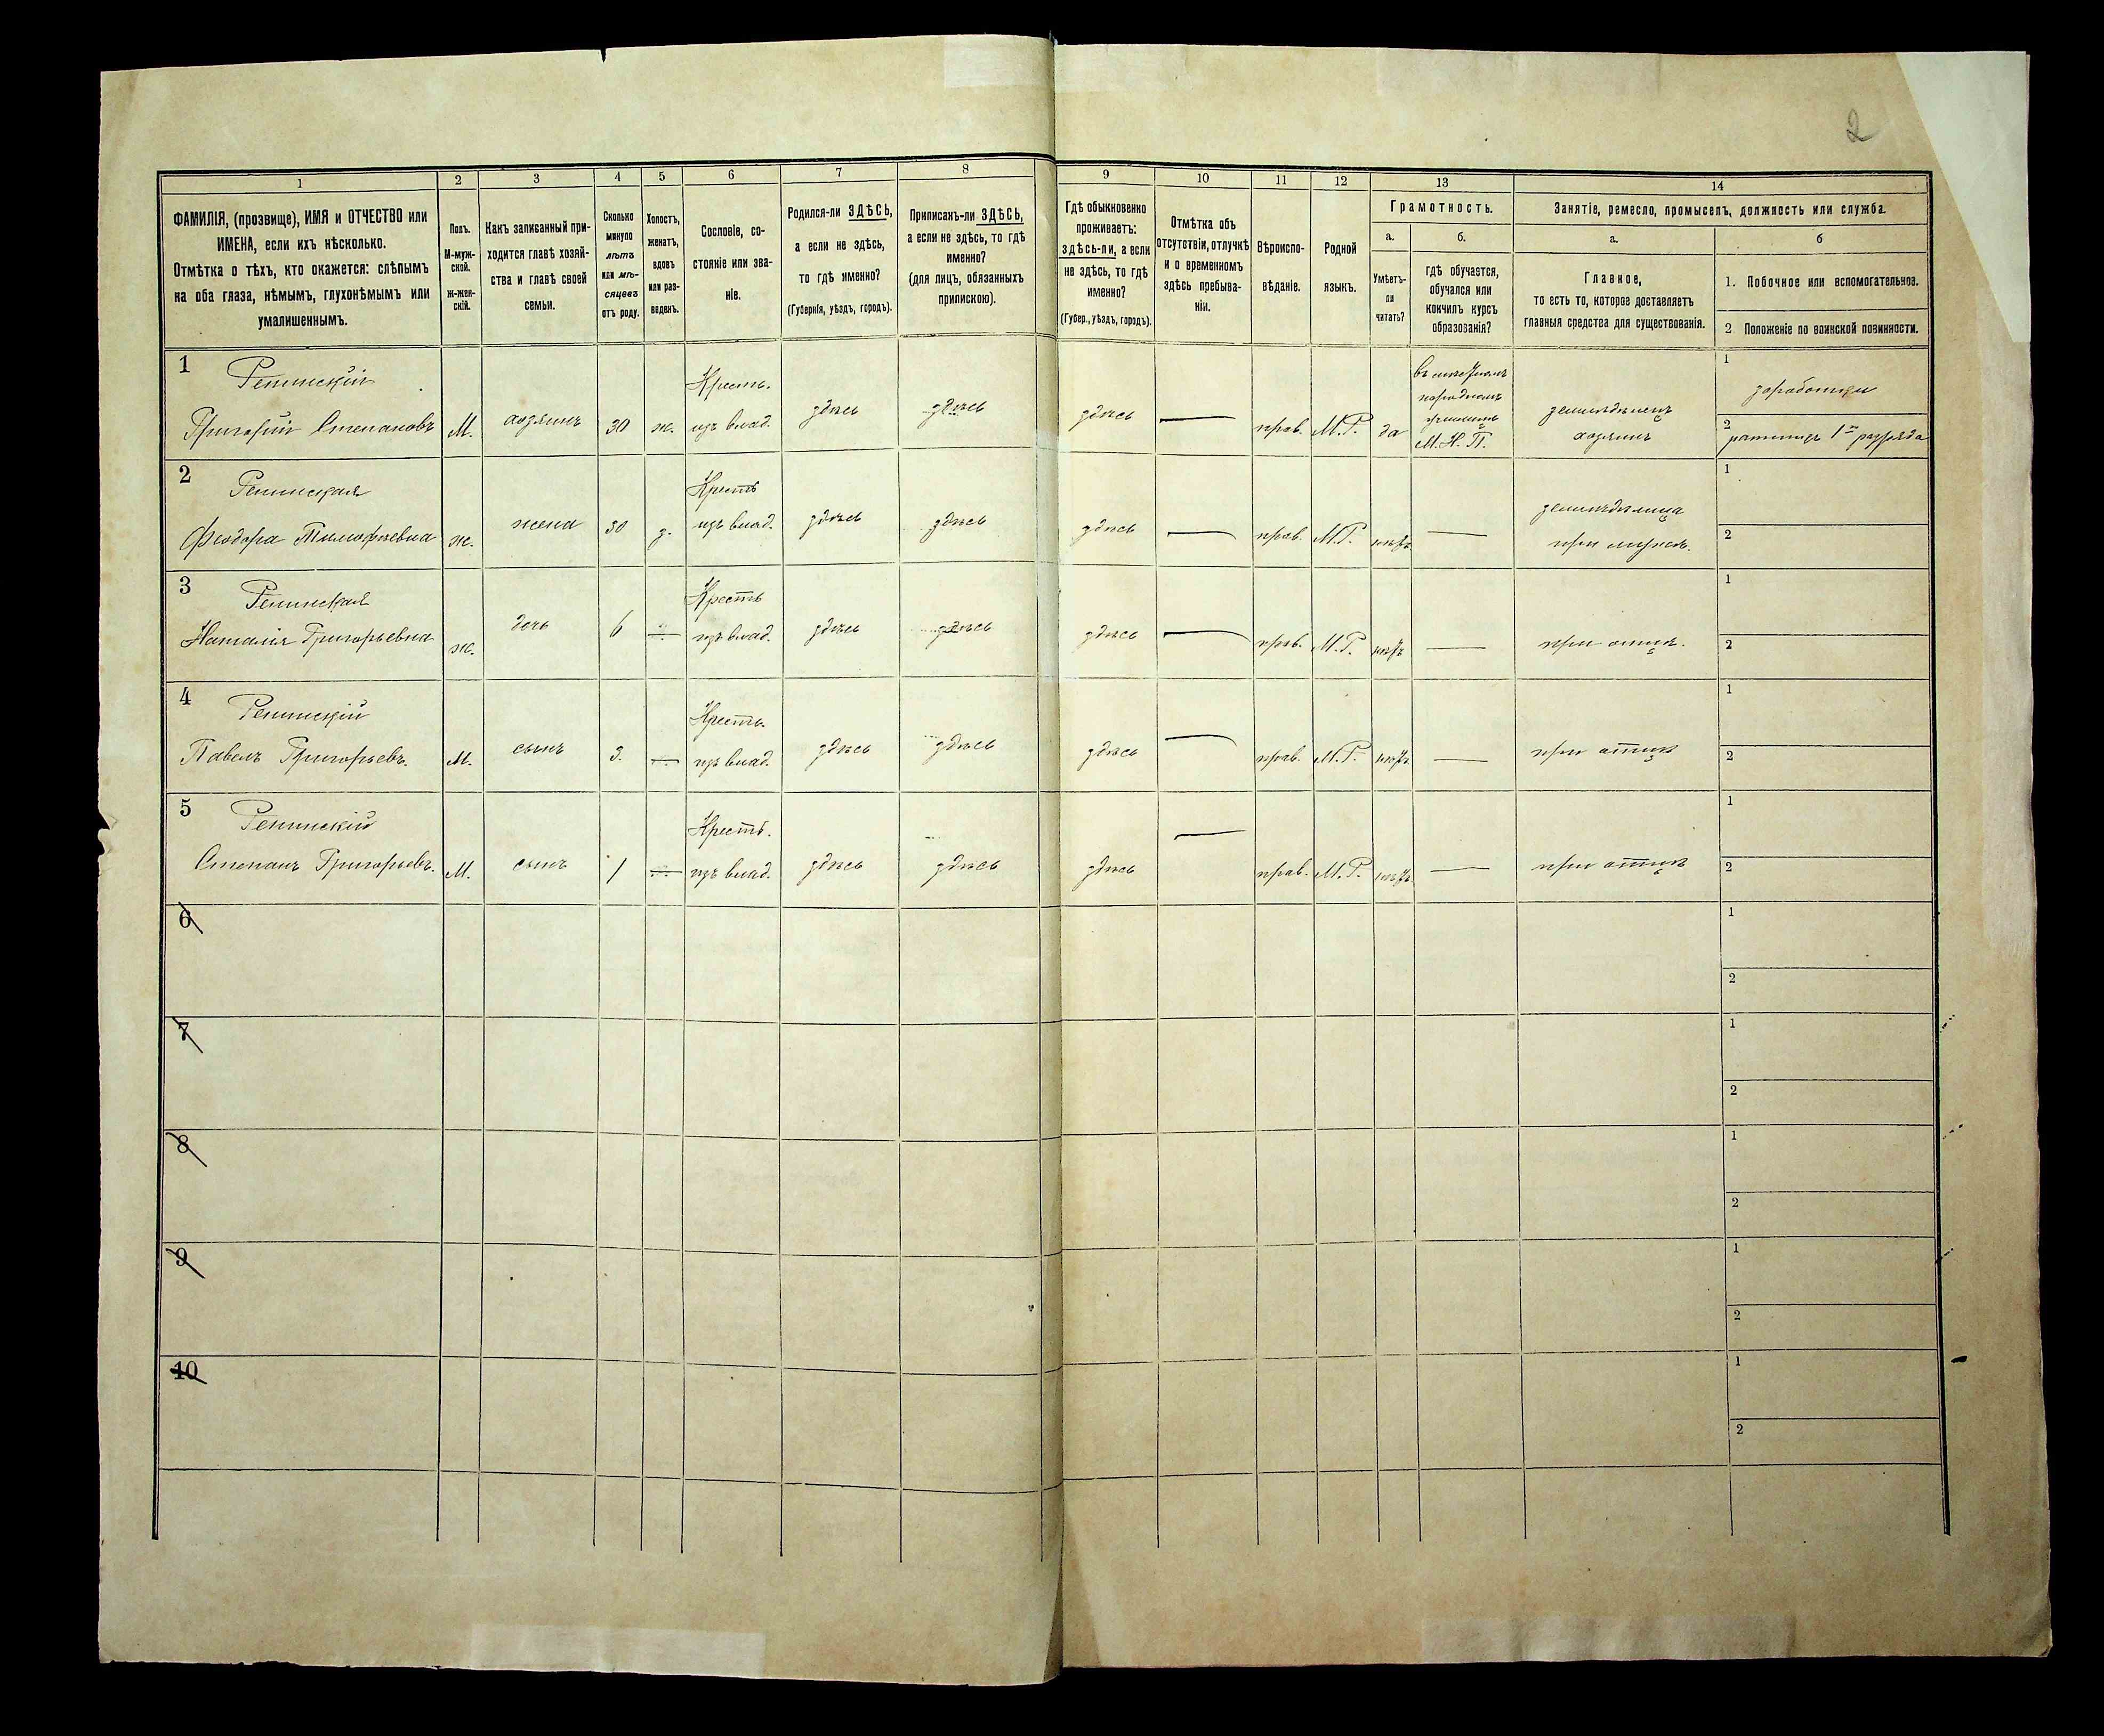 2
1
2
3
4
5
6
7
8
9
10
11
12
13
14
ФАМИЛІЯ, (прозвище), ИМЯ и ОТЧЕСТВО или
ИМЕНА, если ихъ нѣсколько.
Отмѣтка о тѣхъ, кто окажется: слѣпымъ
на оба глаза, нѣмымъ, глухонѣмымъ или
умалишеннымъ.
Полъ.
М-муж-
ской.
ж-жен-
скій.
Какъ записанный при-
ходится главѣ хозяй-
ства и главѣ своей
семьи.
Сколько
минуло
лѣтъ
или мѣ-
сяцевъ
отъ роду.
Холостъ,
женатъ,
вдовъ
или раз-
веденъ.
Сословіе, со-
стояніе или зва-
ніе.
Родился-ли ЗДѢСЬ,
а если не здѣсь,
то гдѣ именно?
(Губернія, уѣздъ, городъ).
Приписанъ-ли ЗДѢСЬ,
а если не здѣсь, то гдѣ
именно?
(для лицъ, обязанныхъ
припискою).
Гдѣ обыкновенно
проживаетъ:
здѣсь-ли, а если
не здѣсь, то гдѣ
именно?
(Губер., уѣздъ, городъ).
Отмѣтка объ
отсутствіи, отлучкѣ
и о временномъ
здѣсь пребыва-
ніи.
Вѣроиспо-
вѣданіе.
Родной
языкъ.
Грамотность.
а.
б.
Умѣетъ-
ли
читать?
гдѣ обучается,
обучался или
кончилъ курсъ
образованія?
Занятіе, ремесло, промыселъ, должность или служба.
а.
б
Главное,
то есть то, которое доставляетъ
главныя средства для существованія.
1. Побочное или вспомогательное.
2 Положеніе по воинской повинности.
1
Репинскій
Григорій Степановъ
М.
хозяинъ
30
ж.
Кресть.
изъ влад.
здѣсь
здѣсь
здѣсь
прав.
М.Р.
да
народномъ
училищѣ
М. Н. П.
земледѣлецъ
хозяинъ
1
заработки
2
ратникъ 1го разряда
2
Репинская
Феодора Тимофѣевна
ж.
жена
30
з.
Кресть
изъ влад.
здѣсь
здѣсь
здѣсь
прав.
М.Р.
нѣтъ
земледѣлица
при мужѣ.
1
2
3
Репинская
Наталія Григорьевна
ж.
дочь
6
Кресть
изъ влад.
здѣсь
здѣсь
здѣсь
прав.
М.Р.
нѣтъ
при отцѣ.
1
2
4
Репинскій
Павелъ Григорьевъ.
М.
сынъ
3.
Кресть.
изъ влад.
здѣсь
здѣсь
здѣсь
прав.
М.Р.
нѣтъ
при отцѣ
1
2
5
Репинскій
Степанъ Григорьевъ.
М.
сынъ
1
Кресть.
изъ влад.
здѣсь
здѣсь
здѣсь
прав.
М.Р.
нѣтъ
при отцѣ
1
2
6
1
2
7
1
2
8
1
2
9
1
2
10
1
2